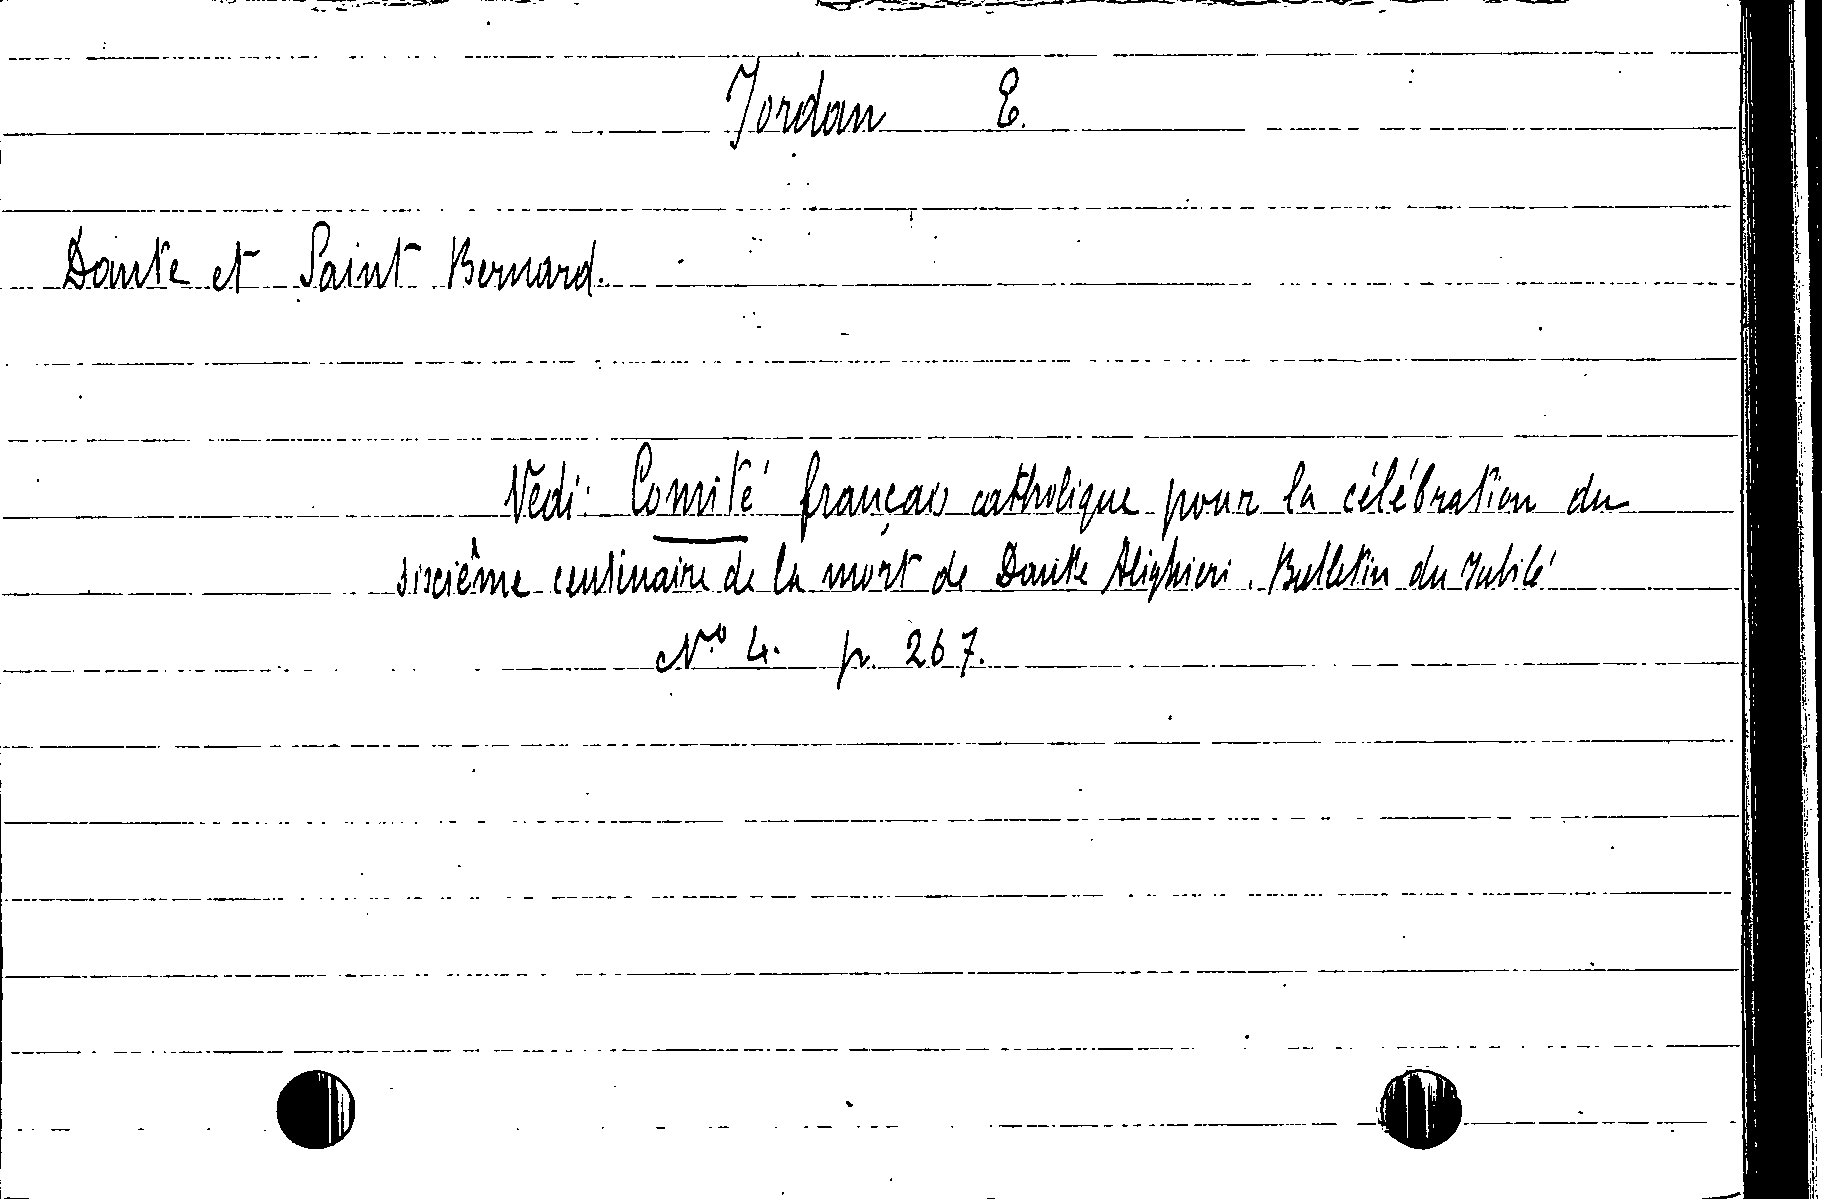 Jordan E.
Dante et Saint Bernard.
Vedi: Comité français catholique pour la célébration du
sixième centinaire de la mort de Dante Alighieri. Bulletin du Jubilé
Nº 4. p. 267.